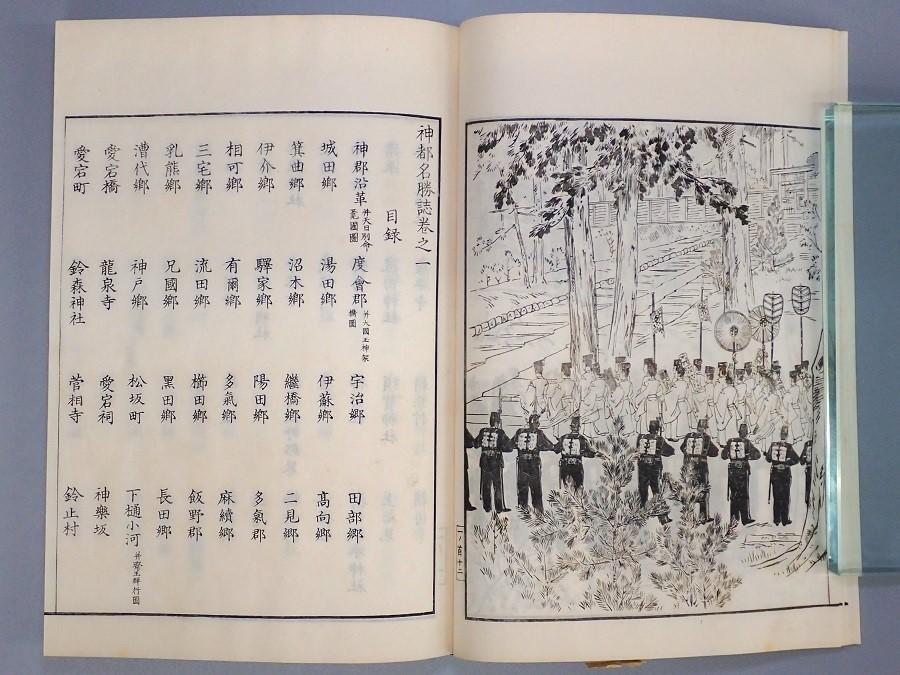 神都名勝誌卷之一
目録
神郡沿革 幷天日別命覔國圖 度會郡 幷大國玉神架橋圖 宇治郷 田部郷
城田郷 湯田郷 伊蘇郷 高向郷
箕曲郷 沼木郷 繼橋郷 二見郷
伊介郷 驛家郷 陽田郷 多氣郡
相可郷 有爾郷 多氣郷 麻續郷
三宅郷 流田郷 櫛田郷 飯野郡
乳熊郷 兄國郷 黑田郷 長田郷
漕代郷 神戸郷 松坂町 下樋小河 幷齋王群行圖
愛宕橋 龍泉寺 愛宕祠 神樂坂
愛宕町 鈴森神社 菅相寺 鈴止村
一ノ首十二